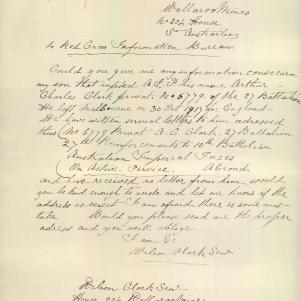 Wallaroo Mines
No 204 House
So Australia
to Red Cross Information Bureau
Could you give me any information concearn
my son that inlisted A.I.F his name Arthur
Charles Clark privat. No 6779 of the 27 Battalion
He left Melbourne on 30 Oct 1917 for England
We have written serveal letters to him adressed
thus (No 6779 Privat A. C. Clark. 27 Battalion
27th Reinforcements to 10th Battalion
Australian Imperial Forces
On Active Service. Abroad,
and have received no letter from him would
you be kind enough to write and let me know if the
address is correct I am afraid there is some mis-
take Would you please send me the proper
adress and you will oblige
I am &c
Wilson Clark Senr
Wilson Clark Senr
House 204 Wallaroo Mines